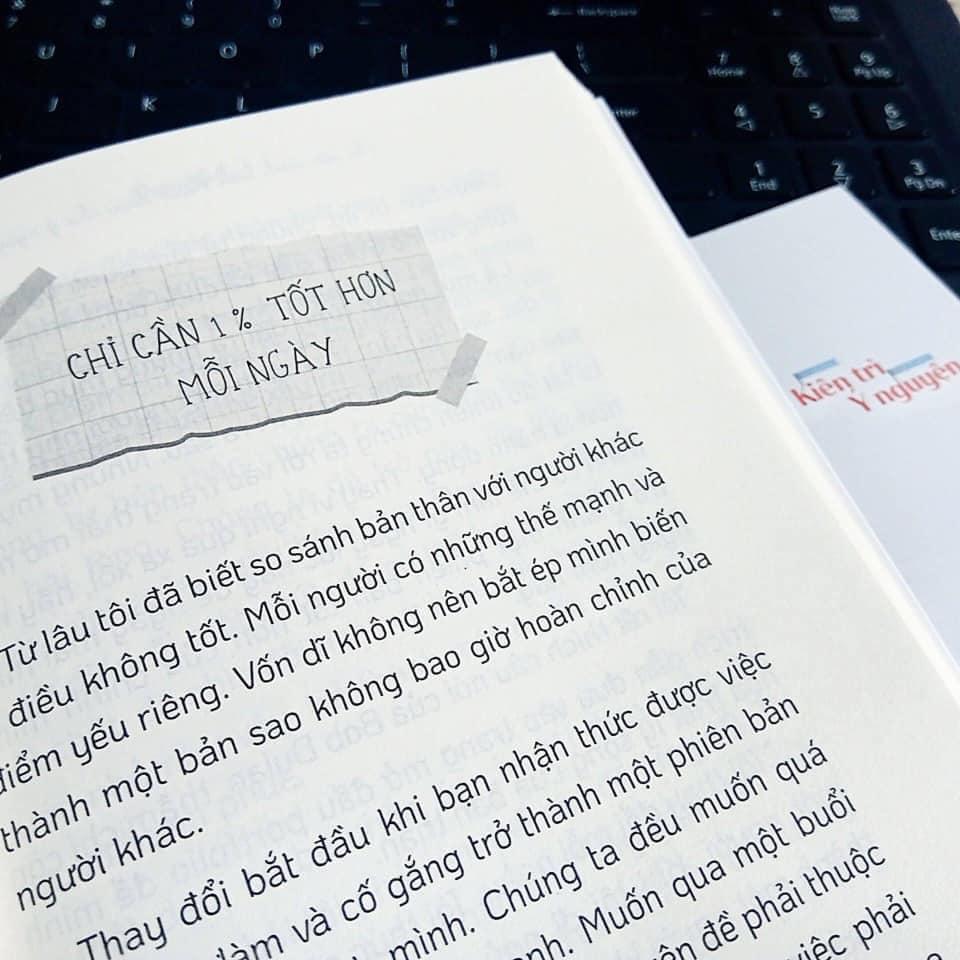 CHỈ CẦN 1% TỐT HƠN
MỖI NGÀY
Từ lâu tôi đã biết so sánh bản thân với người khác
điều không tốt. Mỗi người có những thế mạnh và
điểm yếu riêng. Vốn dĩ không nên bắt ép mình biến
thành một bản sao không bao giờ hoàn chỉnh của
người khác.
Thay đổi bắt đầu khi bạn nhận thức được việc
làm và cố gắng trở thành một phiên bản
mình. Chúng ta đều muốn quá
Muốn qua một buổi
đề phải thuộc
việc phải
kiên trì
Ý nguyện
U I O P
J K L
7 Home 8 9 Pg Up
4 5 6
1 End 2 3 Pg Dn
Enter